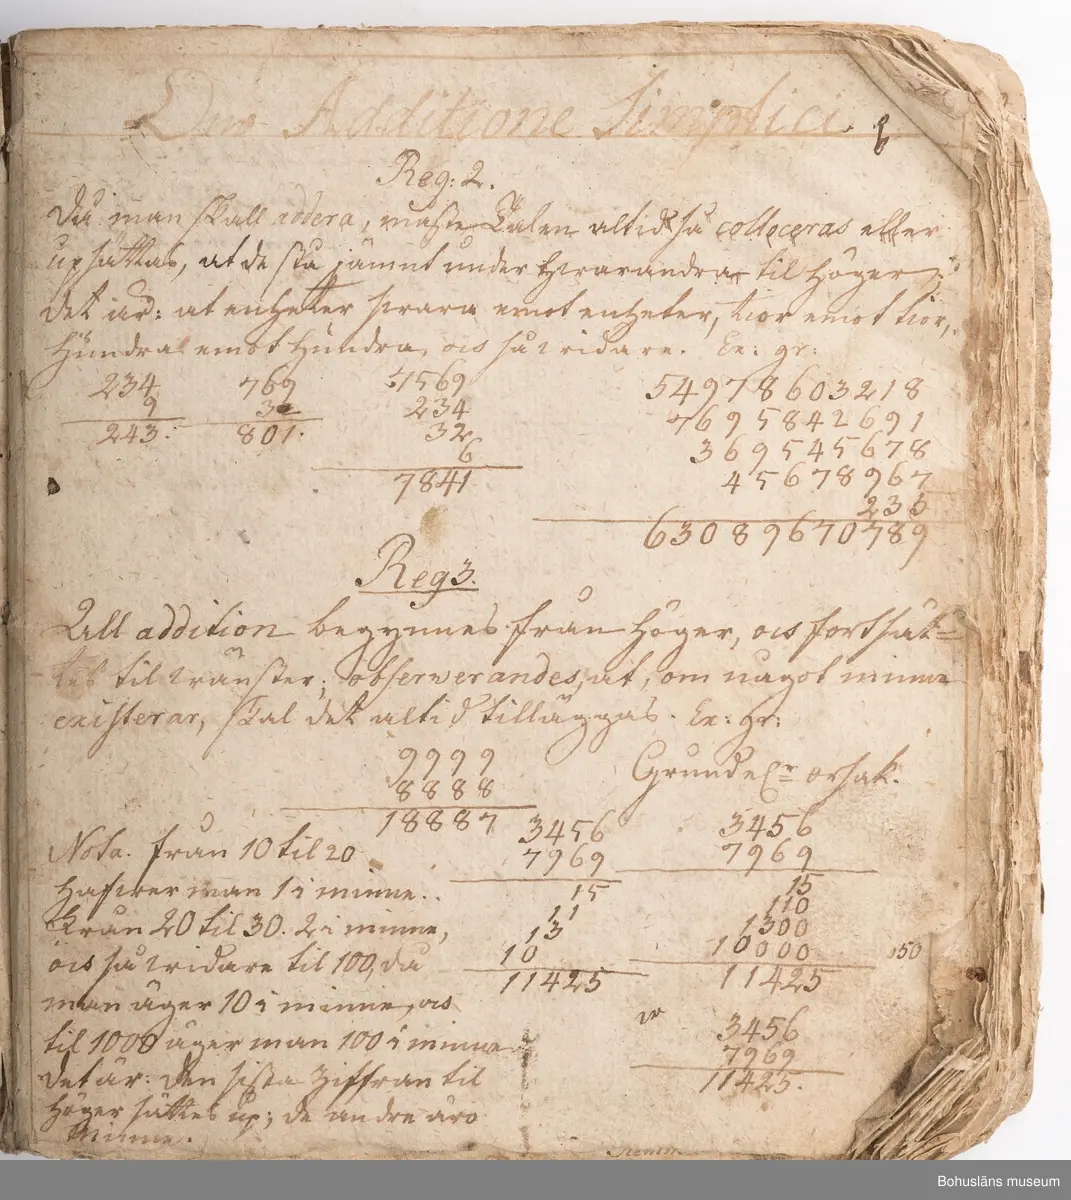 Om Additione Simplici
6
Reg: 2.
Då man skall addera, måste Talen altid så colloceras eller
upsättas, at de stå jämnt under hvarandra til höger;
det är: at enheter svara emot enheter, tior emot tior,
hundra emot hundra, ocs så vidare. Ex: gr:
234 769 7569 54978603218
9 32 234 7695842691
243. 801. 32 369545678
6 45678967
7841 235
63089670789
Reg 3.
All addition begynnes från höger, ocs fortsät=
tes til vänster; observerandes, at, om något minne
existerar, skal det altid tilläggas. Ex: gr:
9999 Grunden orsak.
8888
18887 3456 3456
Nota. från 10 til 20 7969 7969
hafwer man 1 i minne.. 15 15
från 20 til 30. 2 i minne, 11 110
13 1300
ocs så vidare til 100, då 10 10000 050
11425 11425
man äger 10 i minne, ocs
til 1000 äger man 100 i minne 3456
7969
det är: den sista Ziffran til 11425.
höger sättes up; de andre äro
minne.
Bohusläns museum